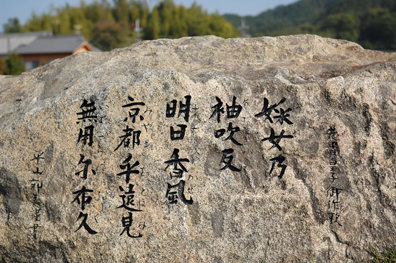 婇女乃
袖吹反
明日香風
京都乎遠見
無用尓布久